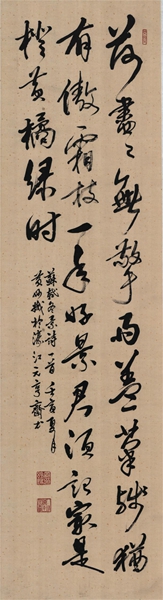 荷盡已無擎雨蓋菊殘猶
有傲霜枝一年好景君須記最是
橙黃橘綠時
蘇軾冬景詩一首壬寅夏月
於濠江元亨齋